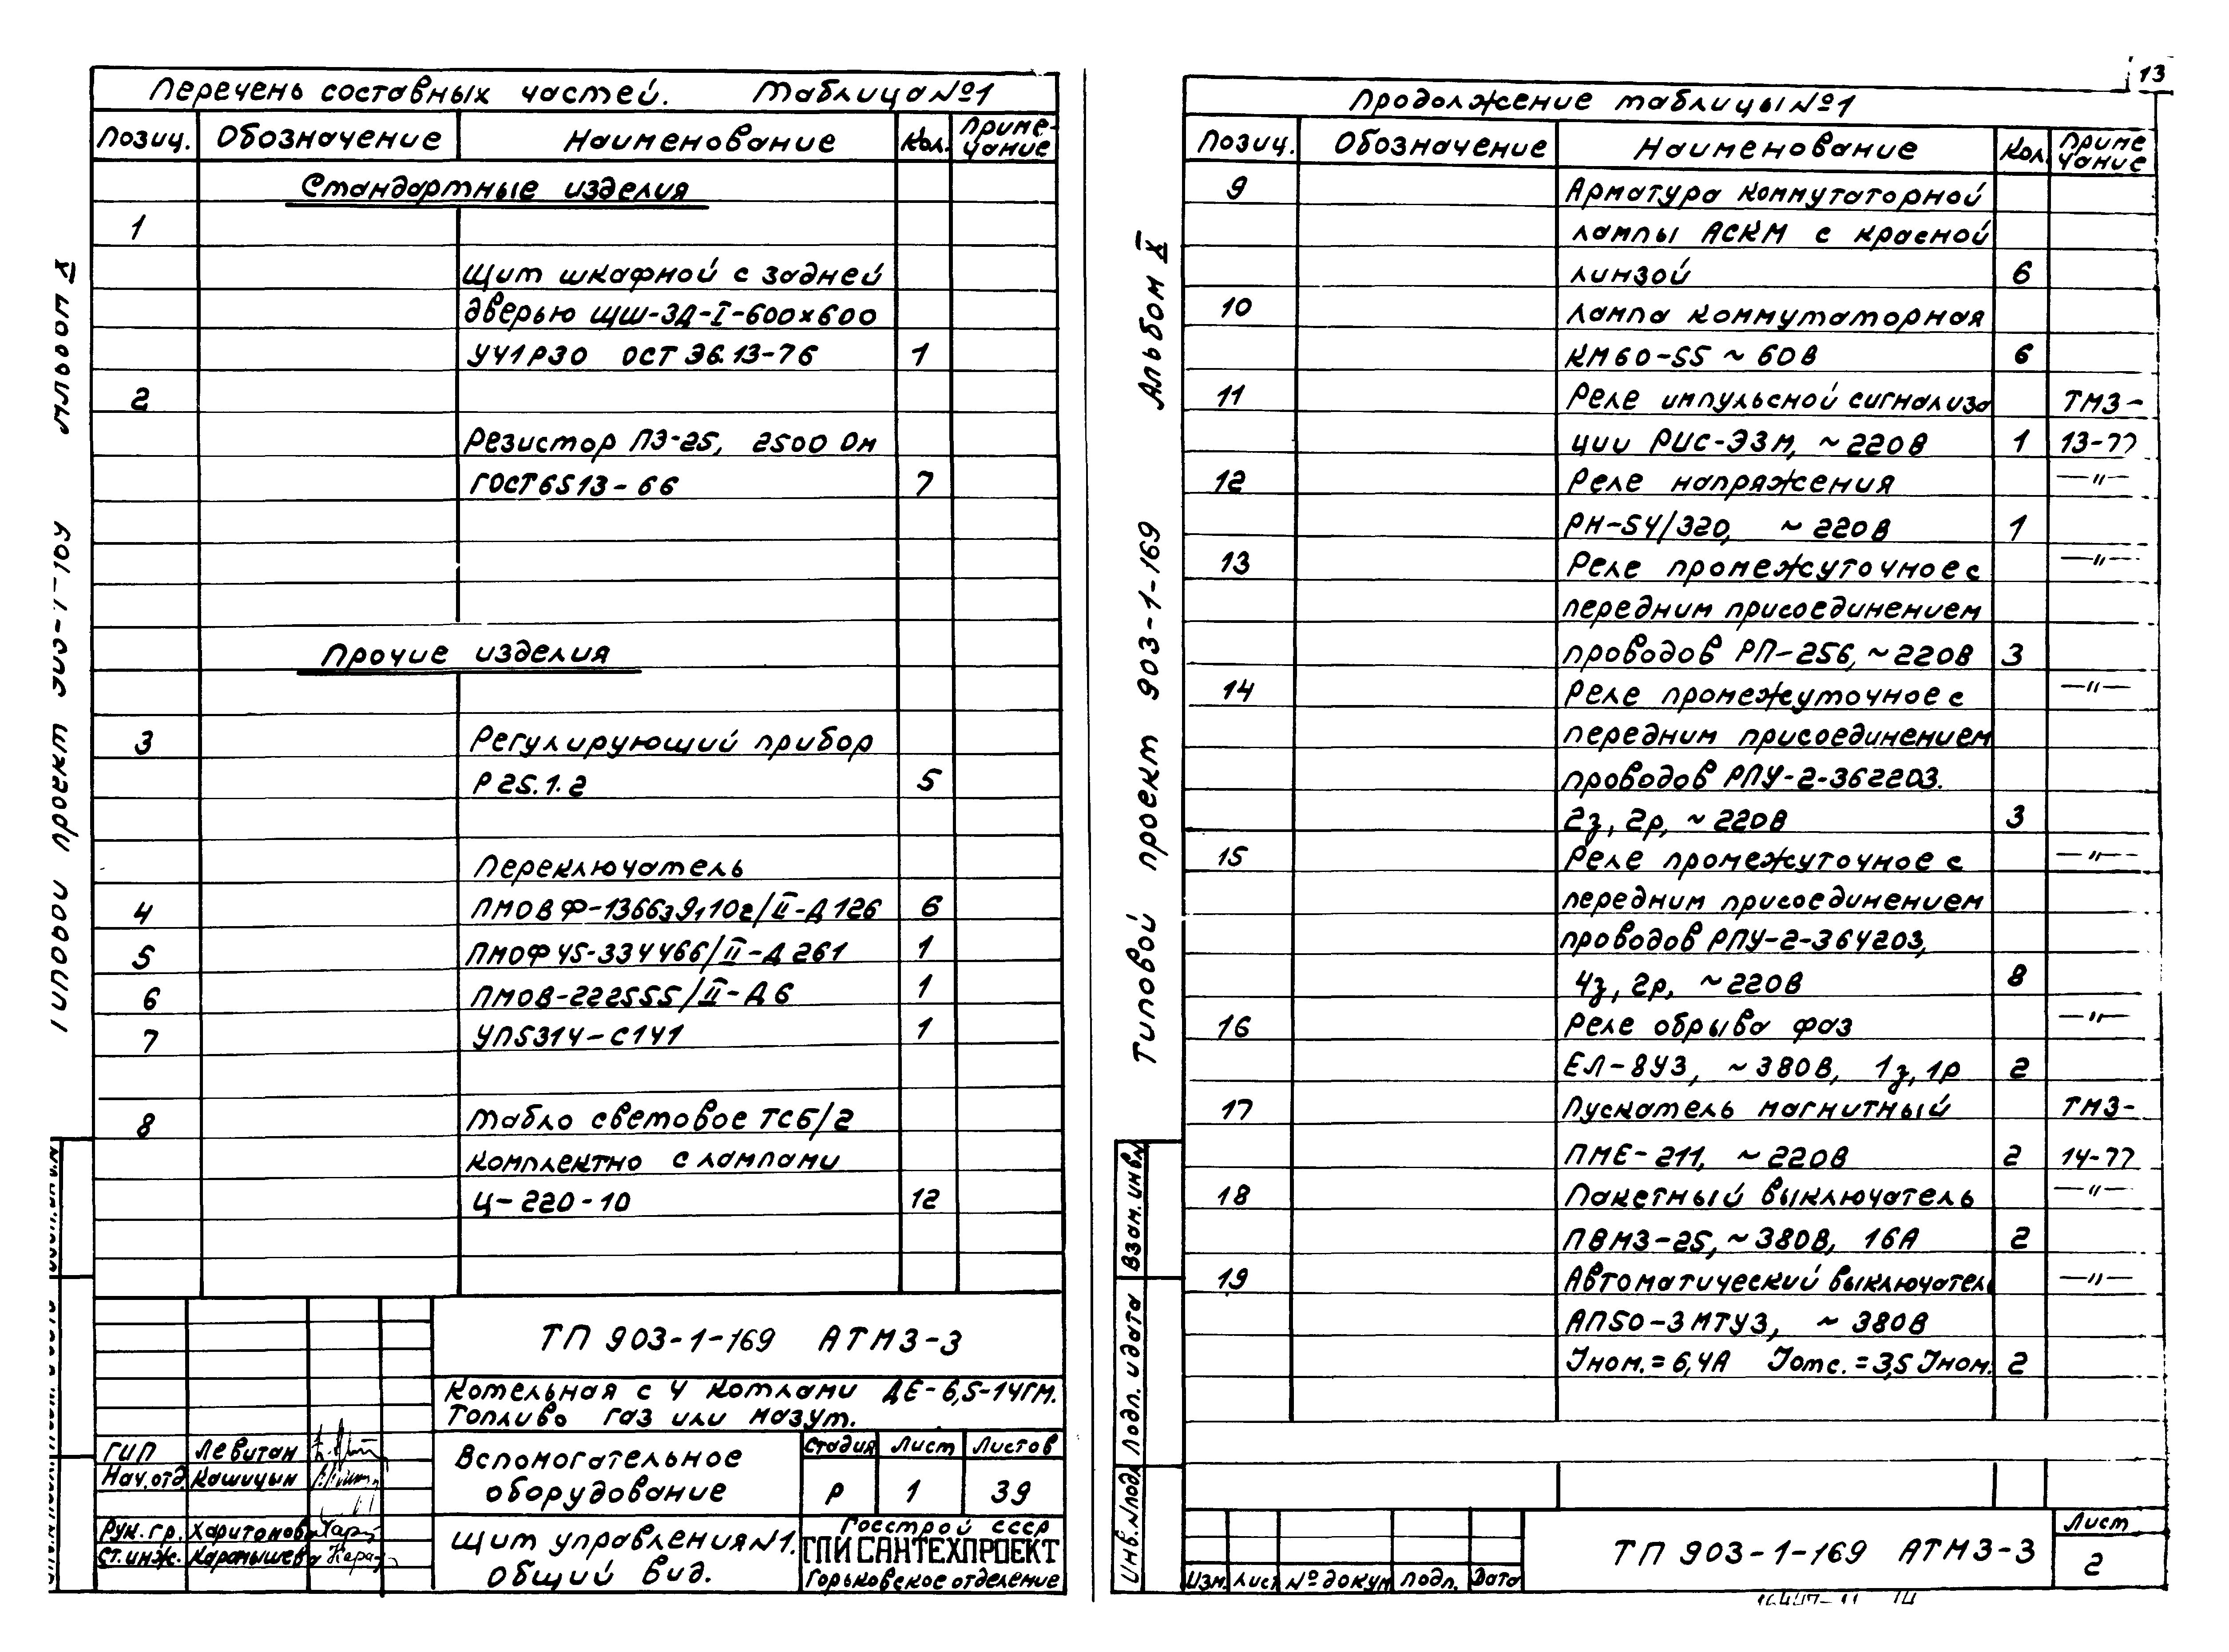 Перечень составных частей. Таблица №1
Позиц. Обозначение Наименование Кол. Приме-
чание
Стандартные изделия
1
Щит шкафной с задней
дверью ЩШ-ЗД-I-600х600
УЧ1Р30 ОСТ 36.13-76 1
2
Резистор ПЭ-25, 2500 Ом
ГОСТ 6513-66 7
Прочие изделия
3 Регулирующий прибор
Р 25.1.2 5
Переключатель
4 ПМОВФ-1366з9,10г/II-Д126 6
5 ПМОФ45-334466/II-Д261 1
6 ПМОВ-222555/II-Д6 1
7 УП5314-С141 1
8 Табло световое ТСБ/2
комплектно с лампами
Ц-220-10 12
ТП 903-1-169 АТМ3-3
Котельная с 4 котлами ДЕ-6,5-14ГМ.
Топливо газ или мазут.
Вспомогательное
оборудование
Стадия Лист Листов
Р 1 39
ГИП Левитан
Нач.отд. Кашицын
Рук.гр. Харитонова
Ст.инж. Карамышева
Щит управления №1.
Общий вид.
Госстрой СССР
ГПИ САНТЕХПРОЕКТ
Горьковское отделение
13
Продолжение таблицы №1
Позиц. Обозначение Наименование Кол. Приме
чание
9 Арматура коммутаторной
лампы АСКМ с красной
линзой 6
10 Лампа коммутаторная
КМ60-55 ~ 60В 6
11 Реле импульсной сигнализа ТМ3-
ции РИС-Э3М, ~220В 1 13-77
12 Реле напряжения —"—
РН-54/320, ~ 220В 1
13 Реле промежуточное с —"—
передним присоединением
проводов РП-256, ~220В 3
14 Реле промежуточное с —"—
передним присоединением
проводов РПУ-2-362203.
2з, 2р, ~220В 3
15 Реле промежуточное с —"—
передним присоединением
проводов РПУ-2-364203,
4з, 2р, ~220В 8
16 Реле обрыва фаз —"—
ЕЛ-8У3, ~380В, 1з, 1р 2
17 Пускатель магнитный ТМ3-
ПМЕ-211, ~220В 2 14-77
18 Пакетный выключатель —"—
ПВМ3-25, ~380В, 16А 2
19 Автоматический выключатель —"—
АП50-3МТУ3, ~ 380В
Iном.=6,4А Iотс.=3,5 Iном. 2
Изм. Лист № докум Подп. Дата
ТП 903-1-169 АТМ3-3
Лист
2
Альбом X
Типовой проект 903-1-169
Взам. инв.№
Подп. и дата
Инв.№подл